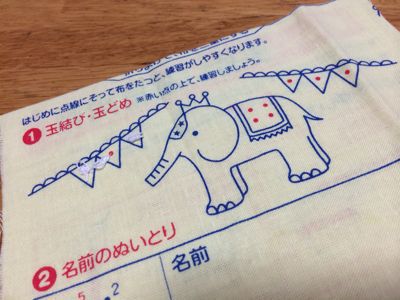 はじめに点線にそって布をたつと、練習がしやすくなります。
❶ 玉結び・玉どめ ※赤い点の上で、練習しましょう。
❷ 名前のぬいとり
名前
5
2